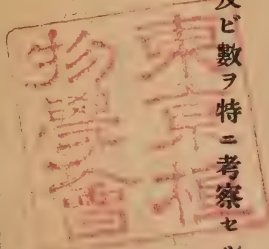 及ビ數ヲ特ニ考察セ
東京植
物學會